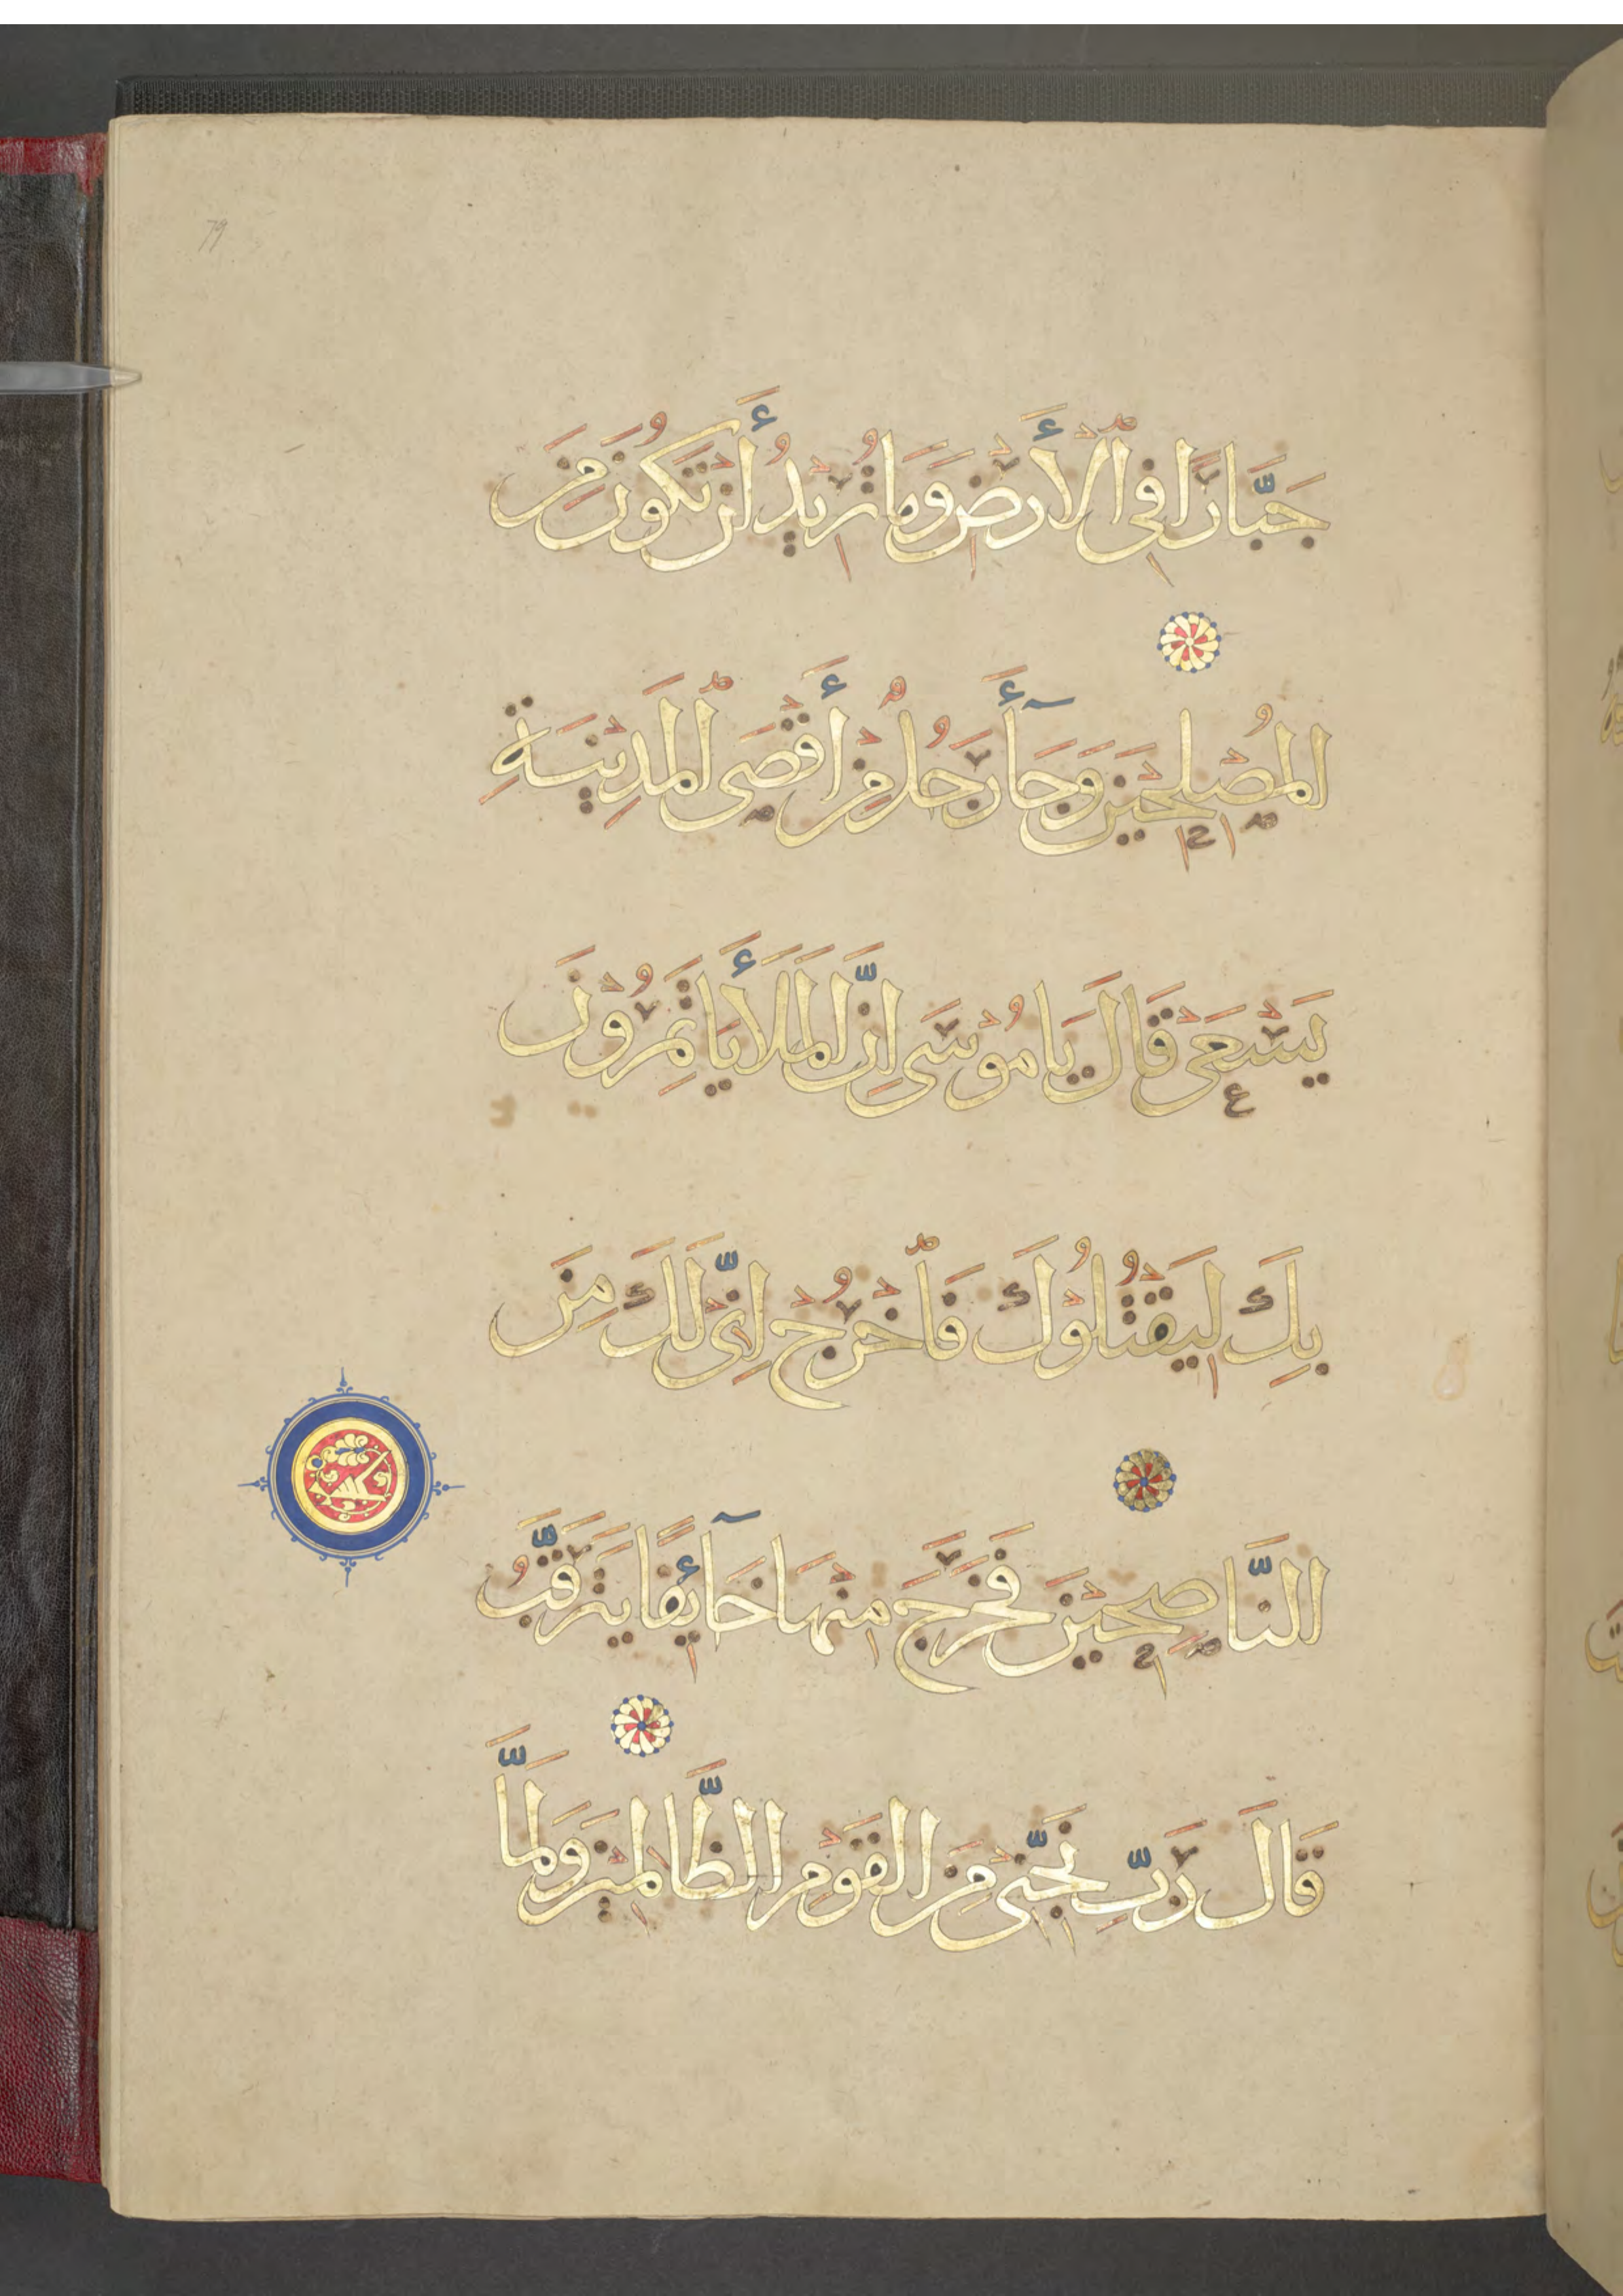 79
جَبَّارًا فِي ٱلْأَرْضِ وَمَا تُرِيدُ أَنْ تَكُونَ مِنَ
الْمُصْلِحِيْنَ وَجَآءَ رَجُلٌ مِنْ أَقْصَى ٱلْمَدِيْنَةِ
يَسْعَىٰ قَالَ يَا مُوْسَى إِنَّ الْمَلَأَ يَأْتَمِرُوْنَ
بِكَ لِيَقْتُلُوْكَ فَٱخْرُجْ إِنِّيْ لَكَ مِنَ
النَّاصِحِيْنَ فَخَرَجَ مِنْهَا خَآئِفًا يَتَرَقَّبُ
قَالَ رَبِّ نَجِّنِيْ مِنَ الْقَوْمِ الظَّالِمِيْنَ وَلَمَّا